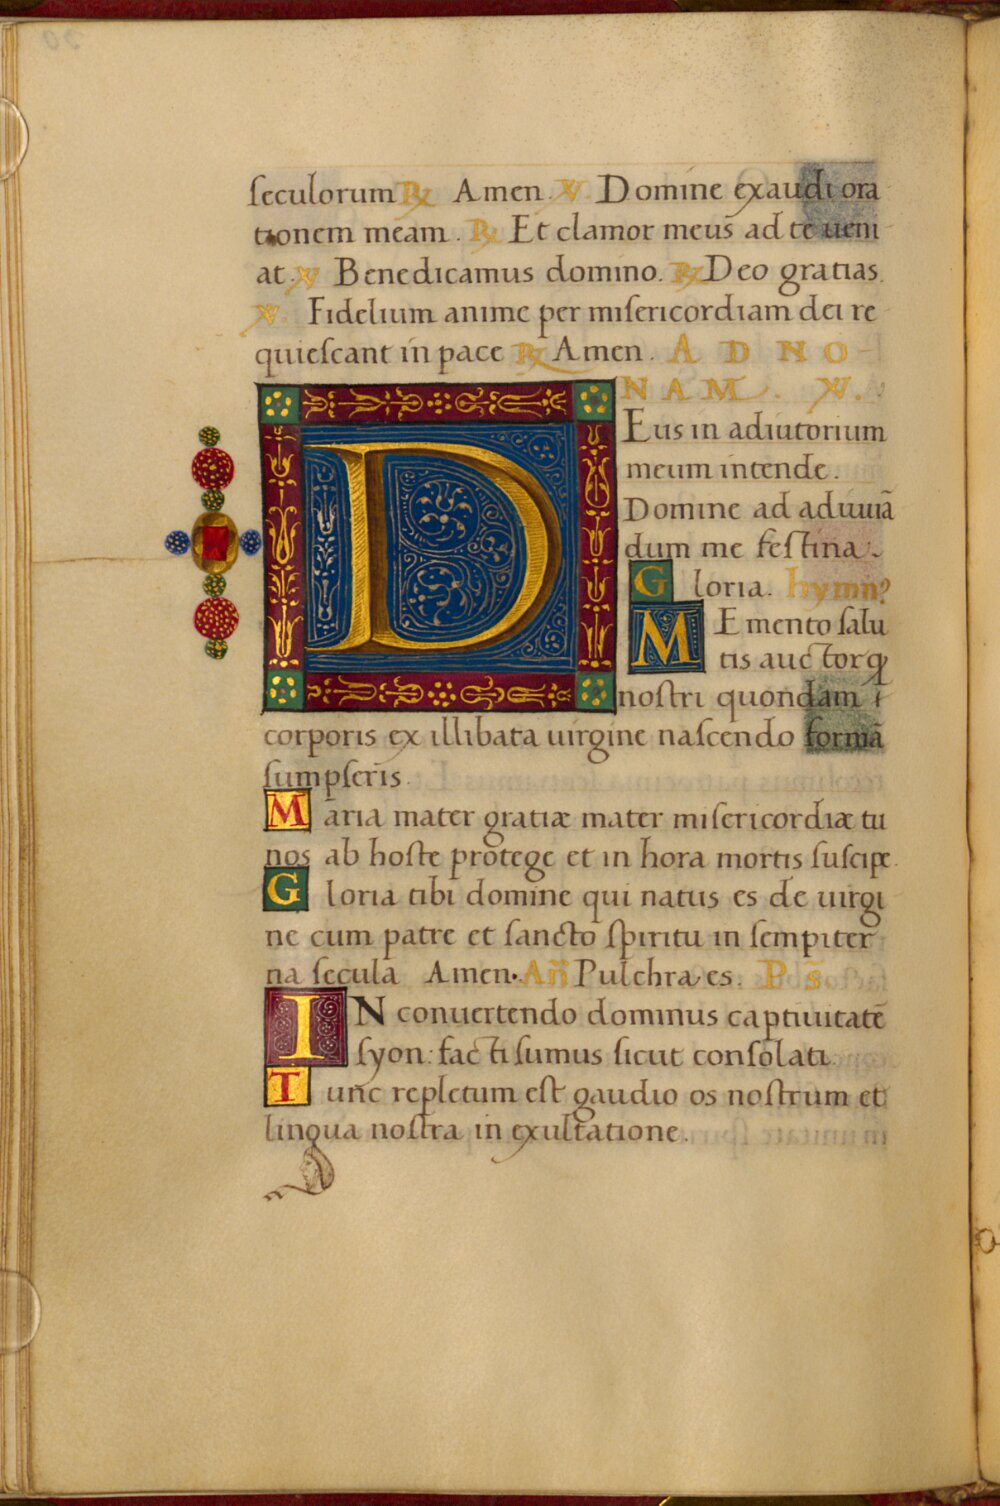 seculorum ℟ Amen. ℣. Domine exaudi ora
tionem meam. ℟ Et clamor meus ad te ueni
at. ℣ Benedicamus domino. ℟ Deo gratias.
℣. Fidelium anime per misericordiam dei re
quiescant in pace ℟ Amen. AD NO
NAM. ℣.
DEus in adiutorium
meum intende.
Domine ad adiuuā
dum me festina.
Gloria. hymnꝰ
MEmento salu
tis auctor ꝙ
nostri quondam
corporis ex illibata uirgine nascendo formā
sumpseris.
Maria mater gratiæ mater misericordiæ tu
nos ab hoste protege et in hora mortis suscipe.
Gloria tibi domine qui natus es de uirgi
ne cum patre et sancto spiritu in sempiter
na secula Amen. An̄ Pulchra es. Ps̄.
IN conuertendo dominus captiuitatē
syon: facti sumus sicut consolati.
Tunc repletum est gaudio os nostrum et
lingua nostra in exultatione.